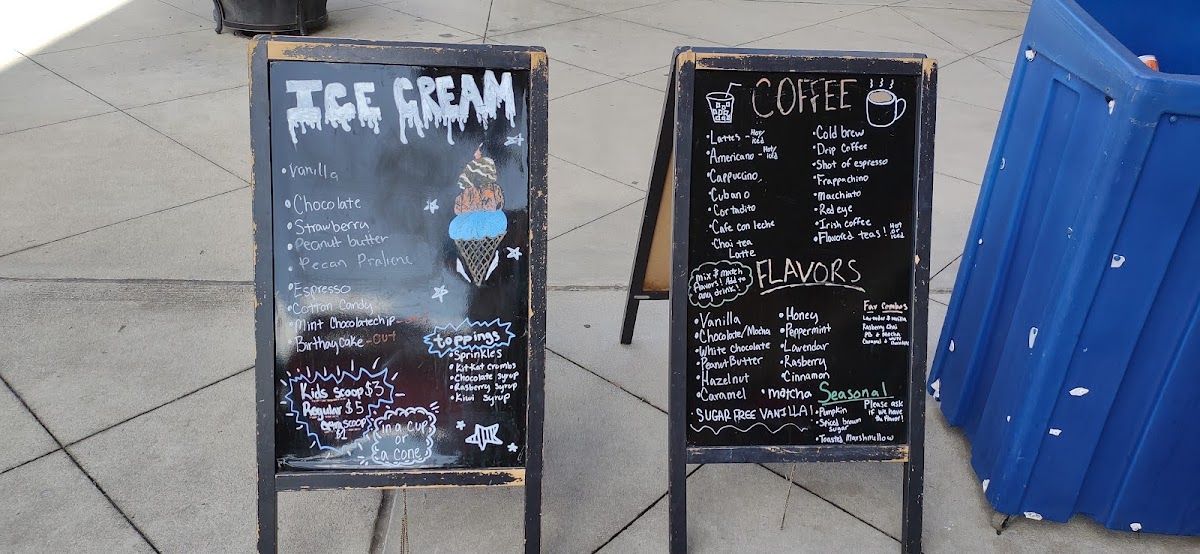 ICE CREAM
•Vanilla
•Chocolate
•Strawberry
•Peanut butter
•Pecan Praline
•Espresso
•Cotton Candy
•Mint Chocolatechip -out
•Birthaycake -out
toppings
•Sprinkles
•Kitkat crumbs
•Chocolate syrup
•Rasberry syrup
•Kiwi syrup
Kids scoop $3
Regular $5
extra scoop
$1
in a cup
or
a cone
COFFEE
•Lattes - Hot/iced
•Americano - Hot/iced
•Cappuccino
•Cubano
•Cortadito
•Cafe con leche
•Chai tea
Latte
•Cold brew
•Drip Coffee
•Shot of espresso
•Frappachino
•Macchiato
•Red eye
•Irish coffee
•Flavored teas! Hot or iced
mix & match
flavors! Add to
any drink!
FLAVORS
•Vanilla
•Chocolate/Mocha
•White chocolate
•Peanut Butter
•Hazelnut
•Caramel
•Honey
•Peppermint
•Lavendar
•Rasberry
•Cinnamon
•matcha
Fav combos
Lavendar & vanilla
Rasberry Chai
PB & Mocha
Caramel & white chocolate
SUGAR FREE VANILLA!
Seasonal
•Pumpkin
•Spiced brown
sugar
•Toasted Marshmellow
Please ask
if we have
the flavor!